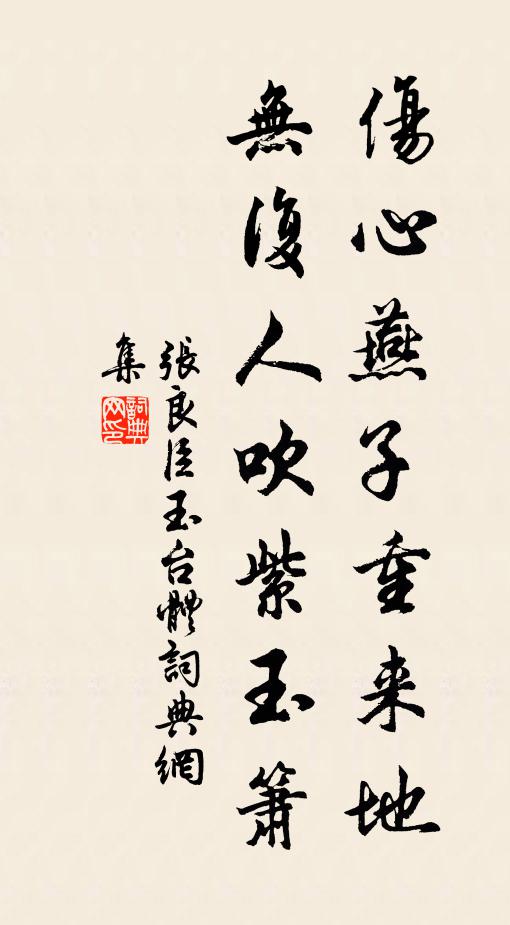 傷心燕子重来地
無復人吹紫玉簫
張良臣玉台體詞典網
集
詞典网印